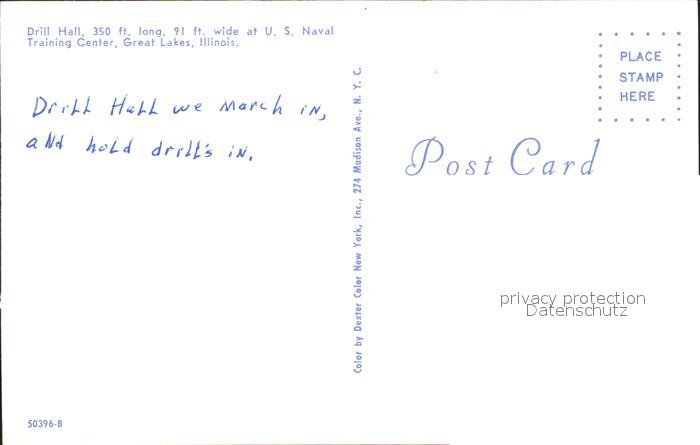 Drill Hall, 350 ft. long, 91 ft. wide at U. S. Naval
Training Center, Great Lakes, Illinois.
Drill Hall we march in,
and hold drill's in.
50396-B
Color by Dexter Color New York, Inc., 274 Madison Ave., N. Y. C.
PLACE
STAMP
HERE
Post Card
privacy protection
Datenschutz